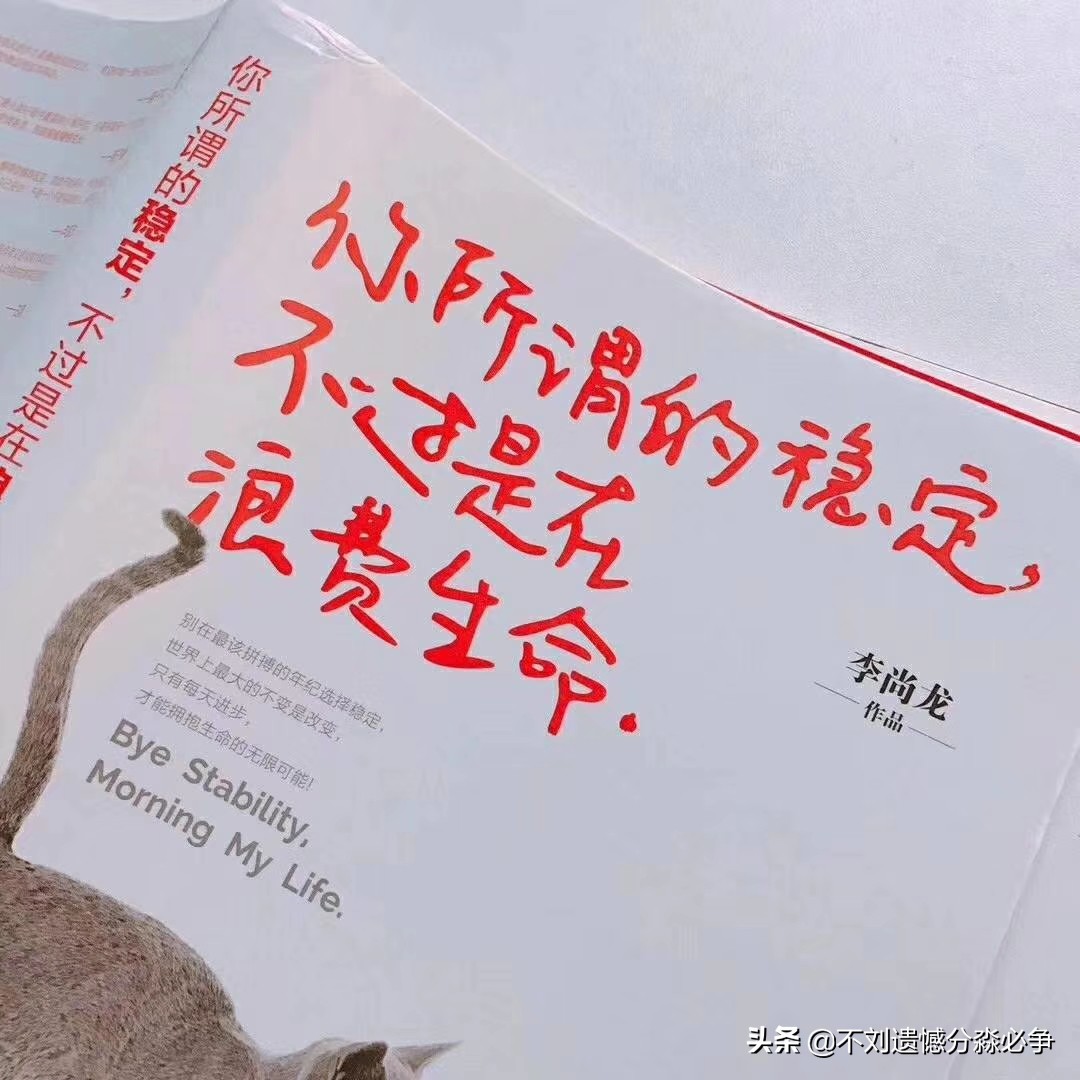 你所谓的稳定，不过是在
你所谓的稳定，
不过是在
浪费生命.
李尚龙
作品
别在最该拼搏的年纪选择稳定，
世界上最大的不变是改变，
只有每天进步，
才能拥抱生命的无限可能！
Bye Stability,
Morning My Life.
头条 @不刘遗憾分淼必争